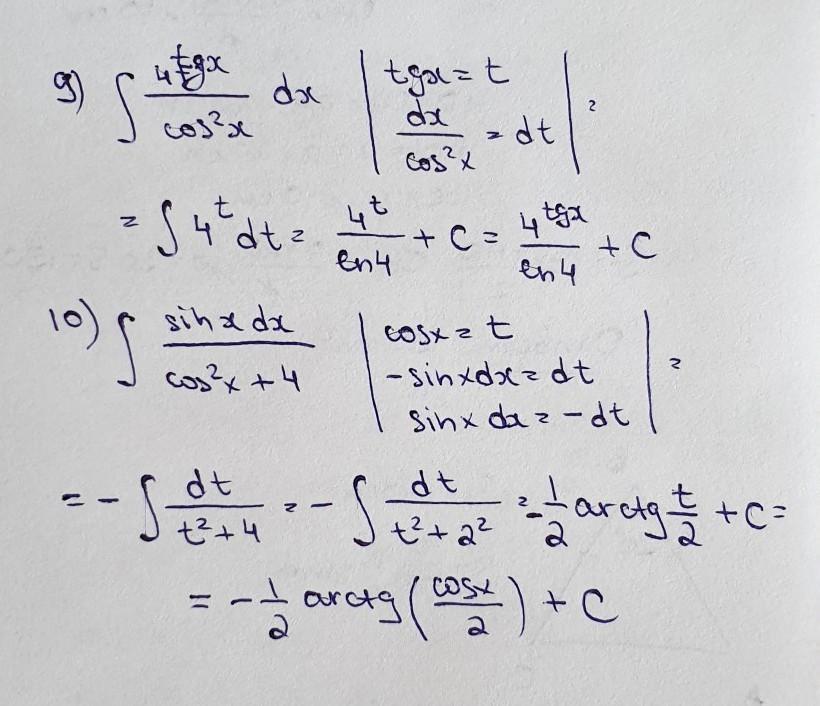 9) ∫ 4^tgx / cos²x dx | tgx = t
dx / cos²x = dt | =
= ∫ 4^t dt = 4^t / ln4 + C = 4^tgx / ln4 + C
10) ∫ sinx dx / cos²x + 4 | cosx = t
-sinxdx = dt
sinx dx = -dt | =
= - ∫ dt / t²+4 = - ∫ dt / t²+2² = -1/2 arctg t/2 + C =
= -1/2 arctg (cosx / 2) + C